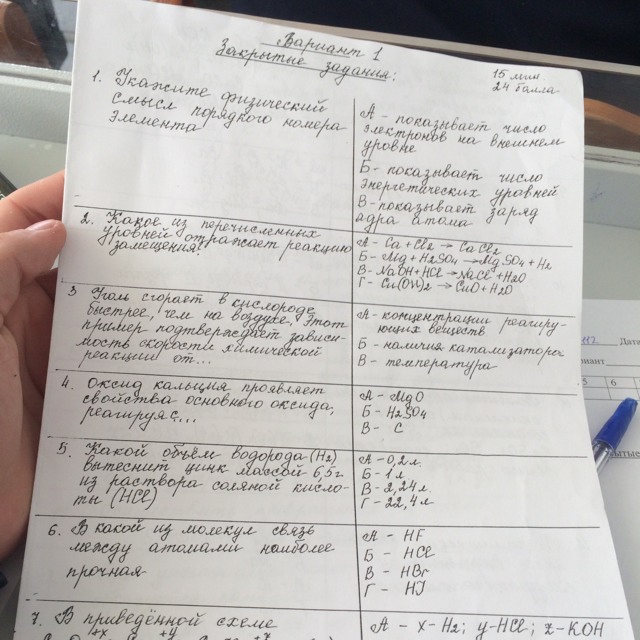 Вариант 1
Закрытые задания:
15 мин
24 балла
1. Укажите физический
смысл порядкого номера
элемента
А - показывает число
электронов на внешнем
уровне
Б - показывает число
энергетических уровней
В - показывает заряд
ядра атома
2. Какое из перечисленных
уровней отражает реакцию
замещения?
А - Ca + Cl2 → CaCl2
Б - Mg + H2SO4 → MgSO4 + H2
В - NaOH + HCl → NaCl + H2O
Г - Cu(OH)2 → CuO + H2O
3. Уголь сгорает в кислороде
быстрее, чем на воздухе. Этот
пример подтверждает зависи-
мость скорости химической
реакции от...
А - концентрации реагиру-
ющих веществ
Б - наличия катализатора
В - температура
4. Оксид кальция проявляет
свойства основного оксида,
реагируя с...
А - MgO
Б - H2SO4
В - C
5. Какой объём водорода (H2)
вытеснит цинк массой 6,5 г
из раствора соляной кисло-
ты (HCl)
А - 0,2 л
Б - 1 л
В - 2,24 л
Г - 22,4 л
6. В какой из молекул связь
между атомами наиболее
прочная
А - HF
Б - HCl
В - HBr
Г - HJ
7. В приведённой схеме
А - x-H2; y-HCl; z-KOH
Дата
5 6